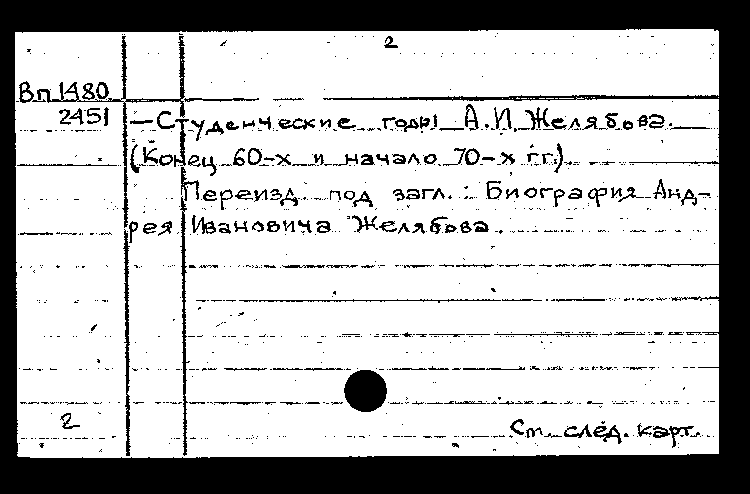 2
Вп 1480
2451
— Студенческие годы А.И. Желябова.
(Конец 60-х и начало 70-х гг.)
Переизд. под загл.: Биография Анд-
рея Ивановича Желябова.
2
См. след. карт.